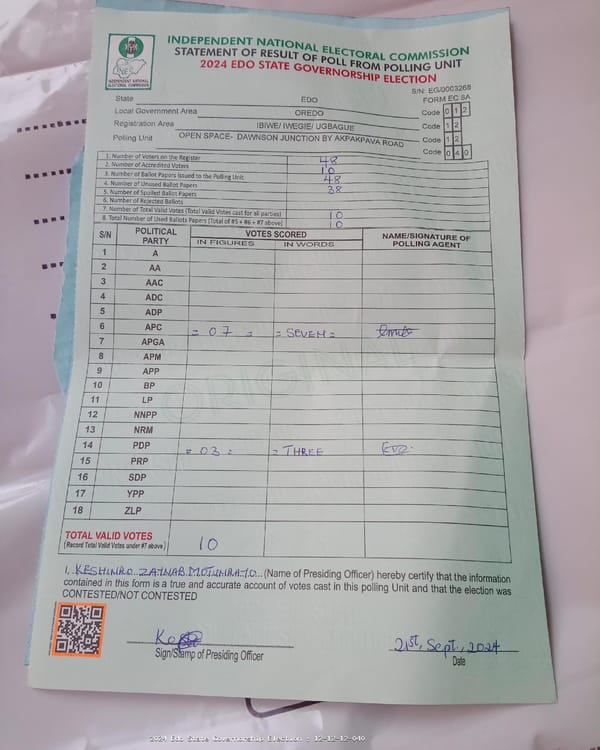 INDEPENDENT NATIONAL ELECTORAL COMMISSION
STATEMENT OF RESULT OF POLL FROM POLLING UNIT
2024 EDO STATE GOVERNORSHIP ELECTION
INEC
INDEPENDENT NATIONAL
ELECTORAL COMMISSION
S/N: EG/0003268
FORM EC 8A
State EDO
Local Government Area OREDO Code 0 1 2
Registration Area IBIWE/ IWEGIE/ UGBAGUE Code 1 2
Polling Unit OPEN SPACE- DAWNSON JUNCTION BY AKPAKPAVA ROAD Code 1 2
Code 0 4 0
1. Number of Voters on the Register 48
2. Number of Accredited Voters 10
3. Number of Ballot Papers Issued to the Polling Unit 48
4. Number of Unused Ballot Papers 38
5. Number of Spoiled Ballot Papers
6. Number of Rejected Ballots
7. Number of Total Valid Votes (Total Valid Votes cast for all parties) 10
8. Total Number of Used Ballots Papers (Total of #5 + #6 + #7 above) 10
S/N POLITICAL PARTY VOTES SCORED NAME/SIGNATURE OF POLLING AGENT
IN FIGURES IN WORDS
1 A
2 AA
3 AAC
4 ADC
5 ADP
6 APC = 07 = = SEVEN =
7 APGA
8 APM
9 APP
10 BP
11 LP
12 NNPP
13 NRM
14 PDP = 03 = = THREE
15 PRP
16 SDP
17 YPP
18 ZLP
ORIGINAL
TOTAL VALID VOTES 10
(Record Total Valid Votes under #7 above)
I, KESHINRO ZAINAB MOTUNRAYO (Name of Presiding Officer) hereby certify that the information
contained in this form is a true and accurate account of votes cast in this polling Unit and that the election was
CONTESTED/NOT CONTESTED
21st, Sept., 2024
Sign/Stamp of Presiding Officer Date
2024 Edo State Governorship Election : 12-12-12-040